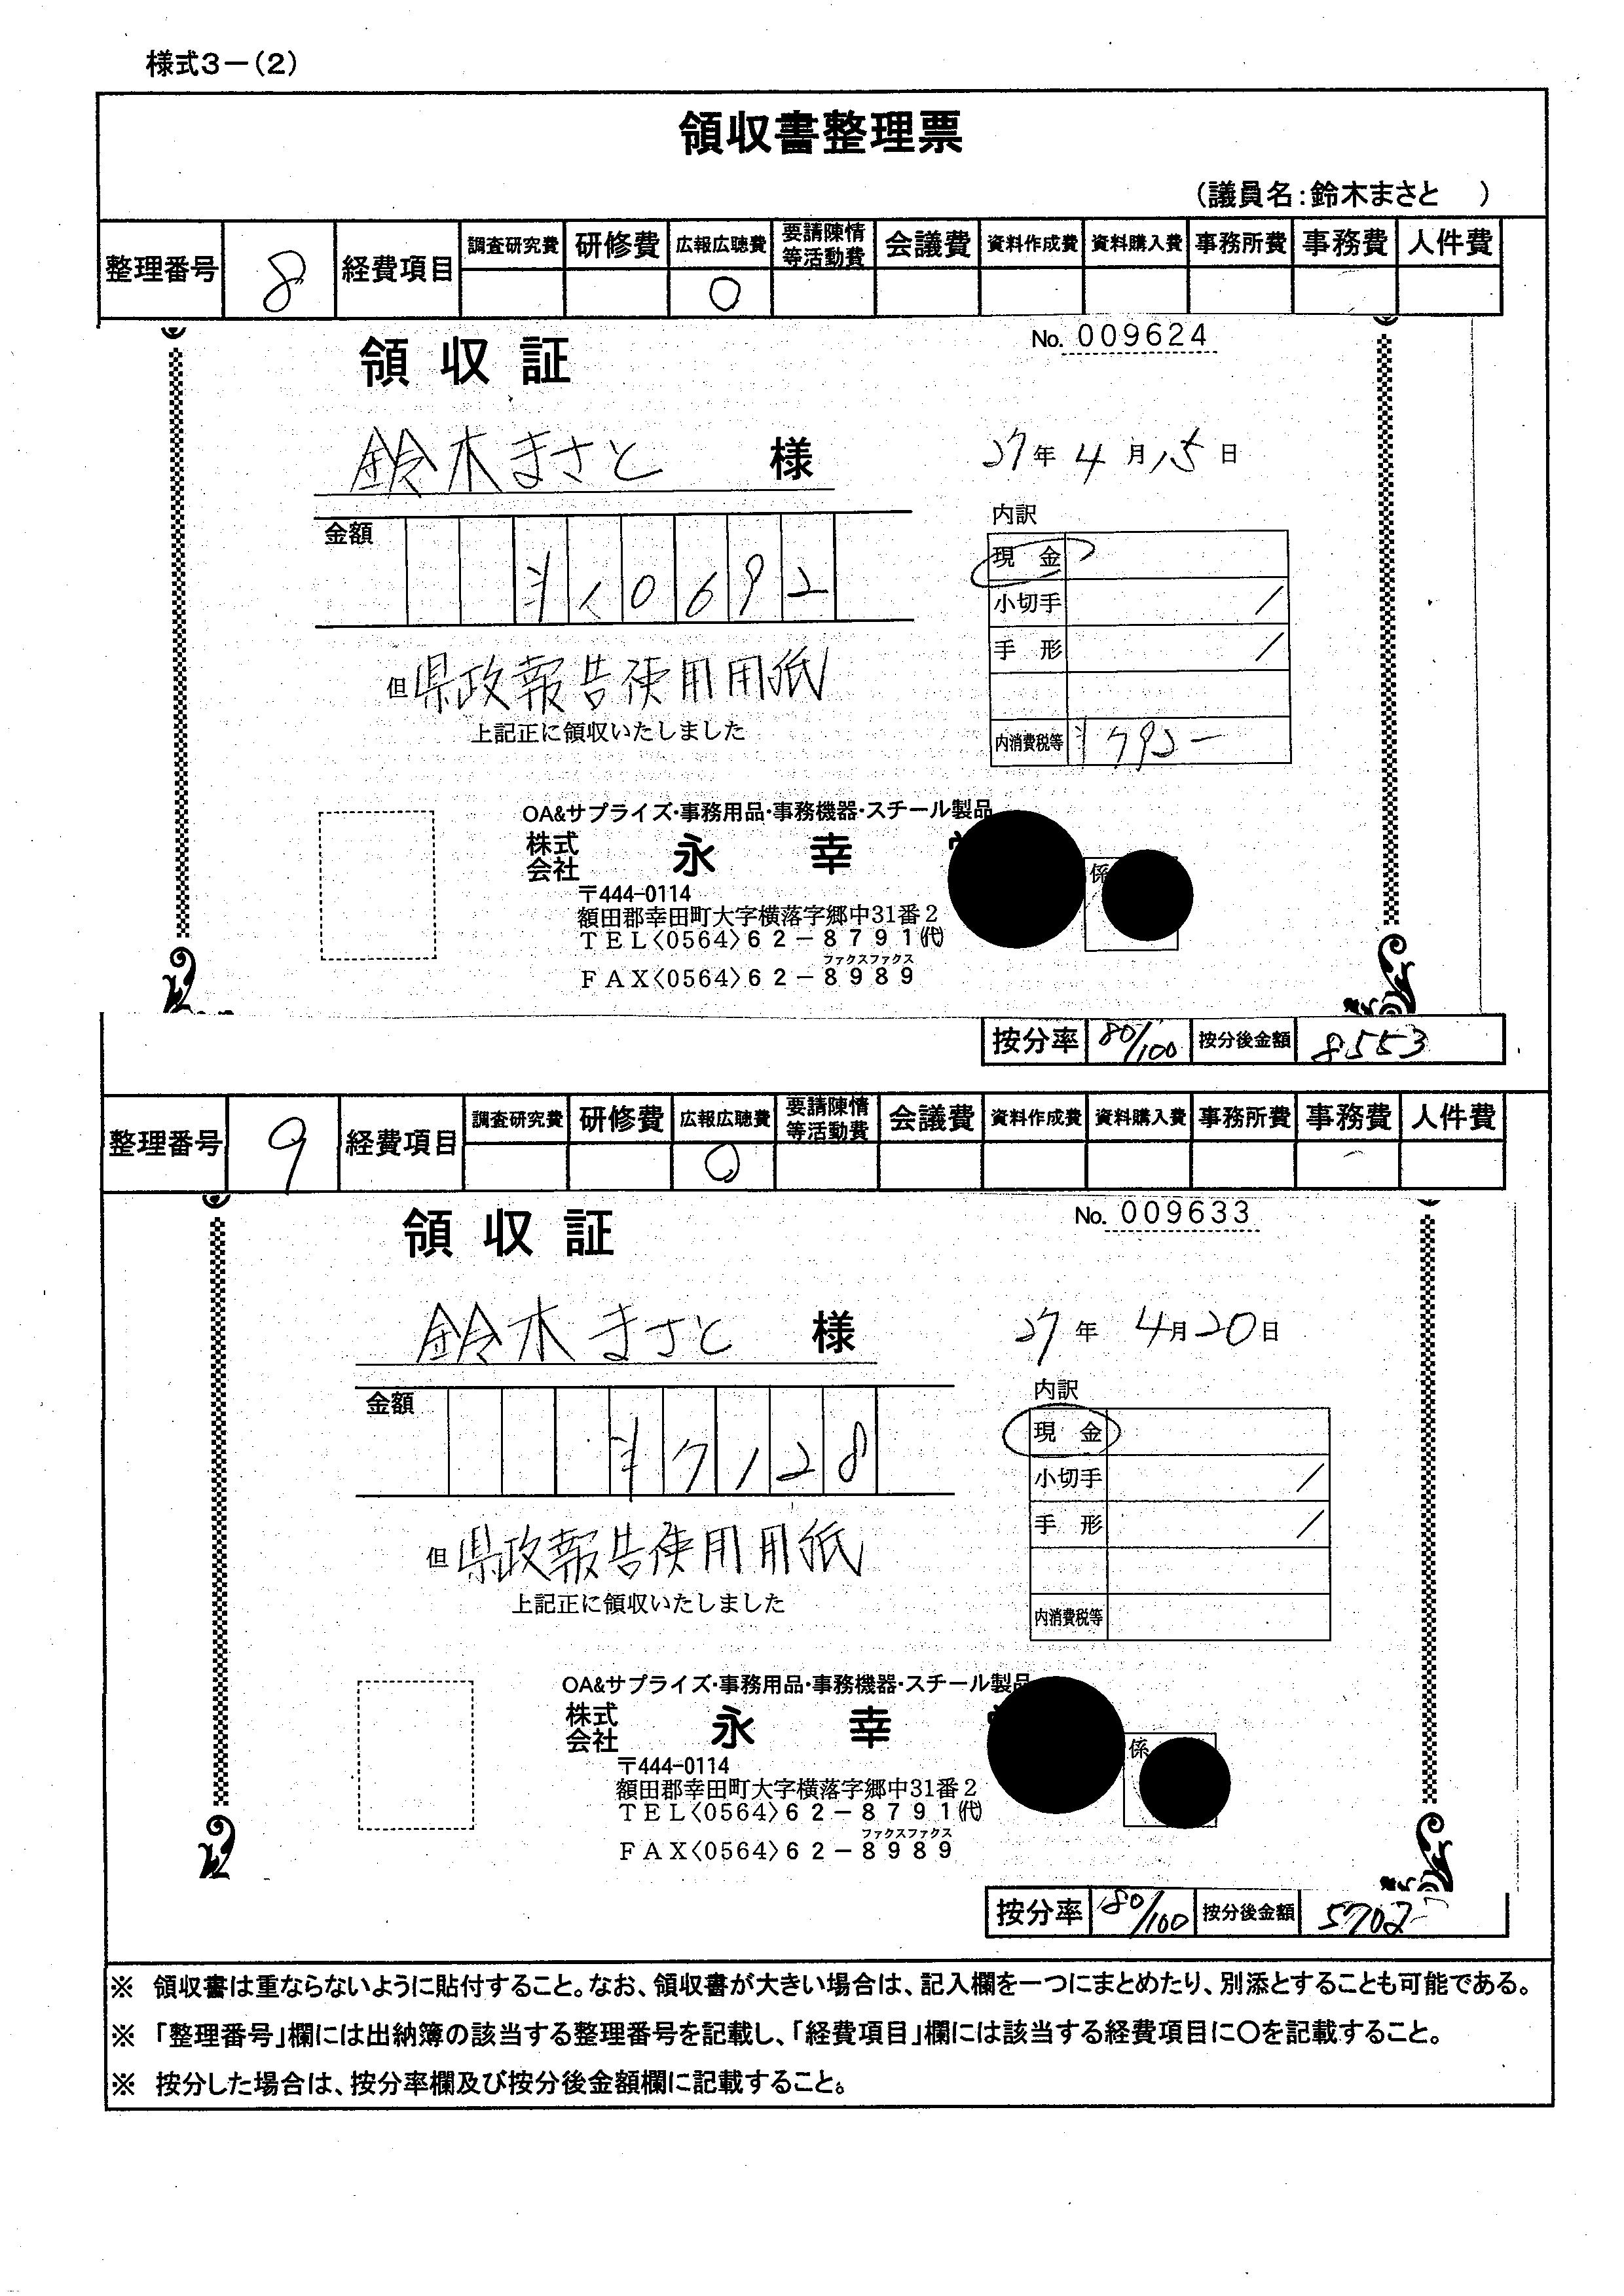 様式3－(2)
領収書整理票
(議員名:鈴木まさと　)
整理番号 8 経費項目 調査研究費 研修費 広報広聴費 要請陳情等活動費 会議費 資料作成費 資料購入費 事務所費 事務費 人件費
○
領収証
No. 009624
鈴木まさと 様
27年4月15日
金額 ¥10692
内訳
現金
小切手 /
手形 /
内消費税等 ¥792－
但 県政報告使用用紙
上記正に領収いたしました
OA&サプライズ・事務用品・事務機器・スチール製品
株式会社 永幸
〒444-0114
額田郡幸田町大字横落字郷中31番2
TEL〈0564〉62－8791(代)
ファクスファクス
FAX〈0564〉62－8989
係
按分率 80/100 按分後金額 8553
整理番号 9 経費項目 調査研究費 研修費 広報広聴費 要請陳情等活動費 会議費 資料作成費 資料購入費 事務所費 事務費 人件費
○
領収証
No. 009633
鈴木まさと 様
27年4月20日
金額 ¥7128
内訳
現金
小切手 /
手形 /
内消費税等
但 県政報告使用用紙
上記正に領収いたしました
OA&サプライズ・事務用品・事務機器・スチール製品
株式会社 永幸
〒444-0114
額田郡幸田町大字横落字郷中31番2
TEL〈0564〉62－8791(代)
ファクスファクス
FAX〈0564〉62－8989
係
按分率 80/100 按分後金額 5702－
※ 領収書は重ならないように貼付すること。なお、領収書が大きい場合は、記入欄を一つにまとめたり、別添とすることも可能である。
※ 「整理番号」欄には出納簿の該当する整理番号を記載し、「経費項目」欄には該当する経費項目に○を記載すること。
※ 按分した場合は、按分率欄及び按分後金額欄に記載すること。